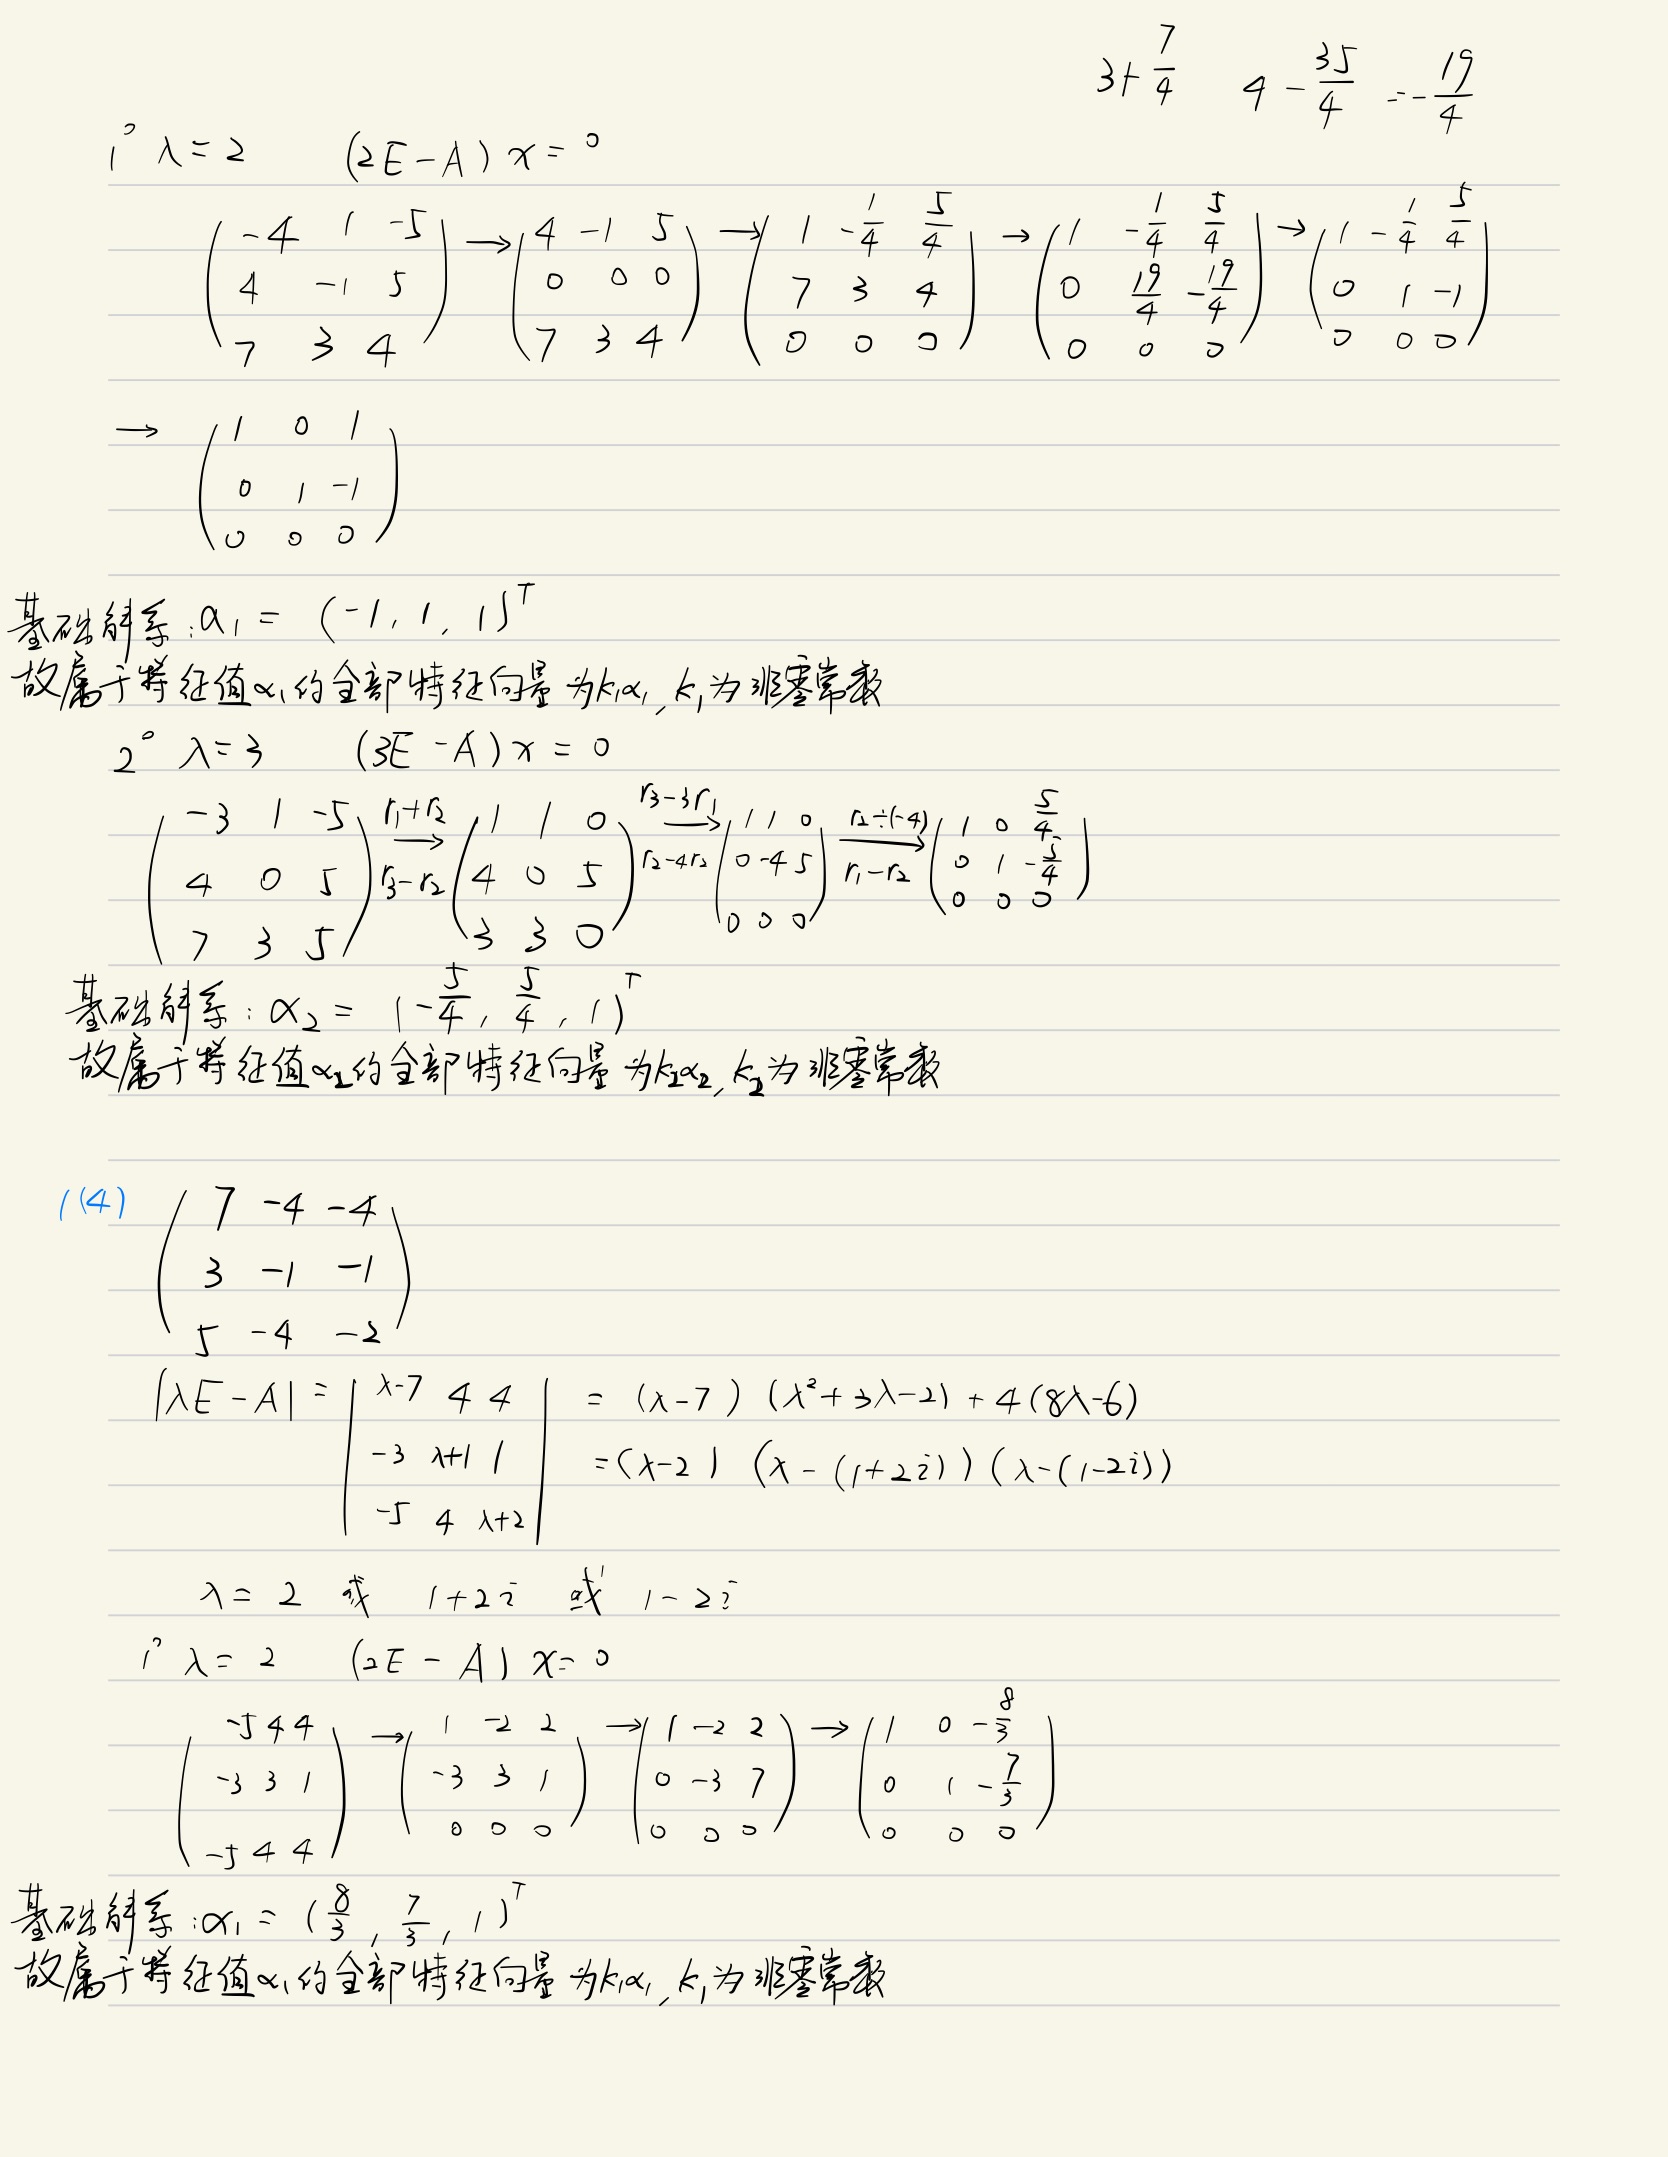 3+ 7/4   4 - 35/4 = -19/4
1° λ=2   (2E-A)x=0
(-4 1 -5; 4 -1 5; 7 3 4) → (4 -1 5; 0 0 0; 7 3 4) → (1 -1/4 5/4; 7 3 4; 0 0 0) → (1 -1/4 5/4; 0 19/4 -19/4; 0 0 0) → (1 -1/4 5/4; 0 1 -1; 0 0 0)
→ (1 0 1; 0 1 -1; 0 0 0)
基础解系:α₁ = (-1, 1, 1)ᵀ
故属于特征值α₁的全部特征向量为k₁α₁, k₁为非零常数
2° λ=3   (3E-A)x=0
(-3 1 -5; 4 0 5; 7 3 5) r₁+r₂ → r₃-r₂ (1 1 0; 4 0 5; 3 3 0) r₃-3r₁ → r₂-4r₂ (1 1 0; 0 -4 5; 0 0 0) r₂÷(-4) → r₁-r₂ (1 0 5/4; 0 1 -5/4; 0 0 0)
基础解系:α₂ = (-5/4, 5/4, 1)ᵀ
故属于特征值α₂的全部特征向量为k₂α₂, k₂为非零常数
1(4) (7 -4 -4; 3 -1 -1; 5 -4 -2)
|λE-A| = |λ-7 4 4; -3 λ+1 1; -5 4 λ+2| = (λ-7)(λ²+3λ-2)+4(8λ-6)
=(λ-2)(λ-(1+2i))(λ-(1-2i))
λ=2 或 1+2i 或 1-2i
1° λ=2   (2E-A)x=0
(-5 4 4; -3 3 1; -5 4 4) → (1 -2 2; -3 3 1; 0 0 0) → (1 -2 2; 0 -3 7; 0 0 0) → (1 0 -8/3; 0 1 -7/3; 0 0 0)
基础解系:α₁ = (8/3, 7/3, 1)ᵀ
故属于特征值α₁的全部特征向量为k₁α₁, k₁为非零常数